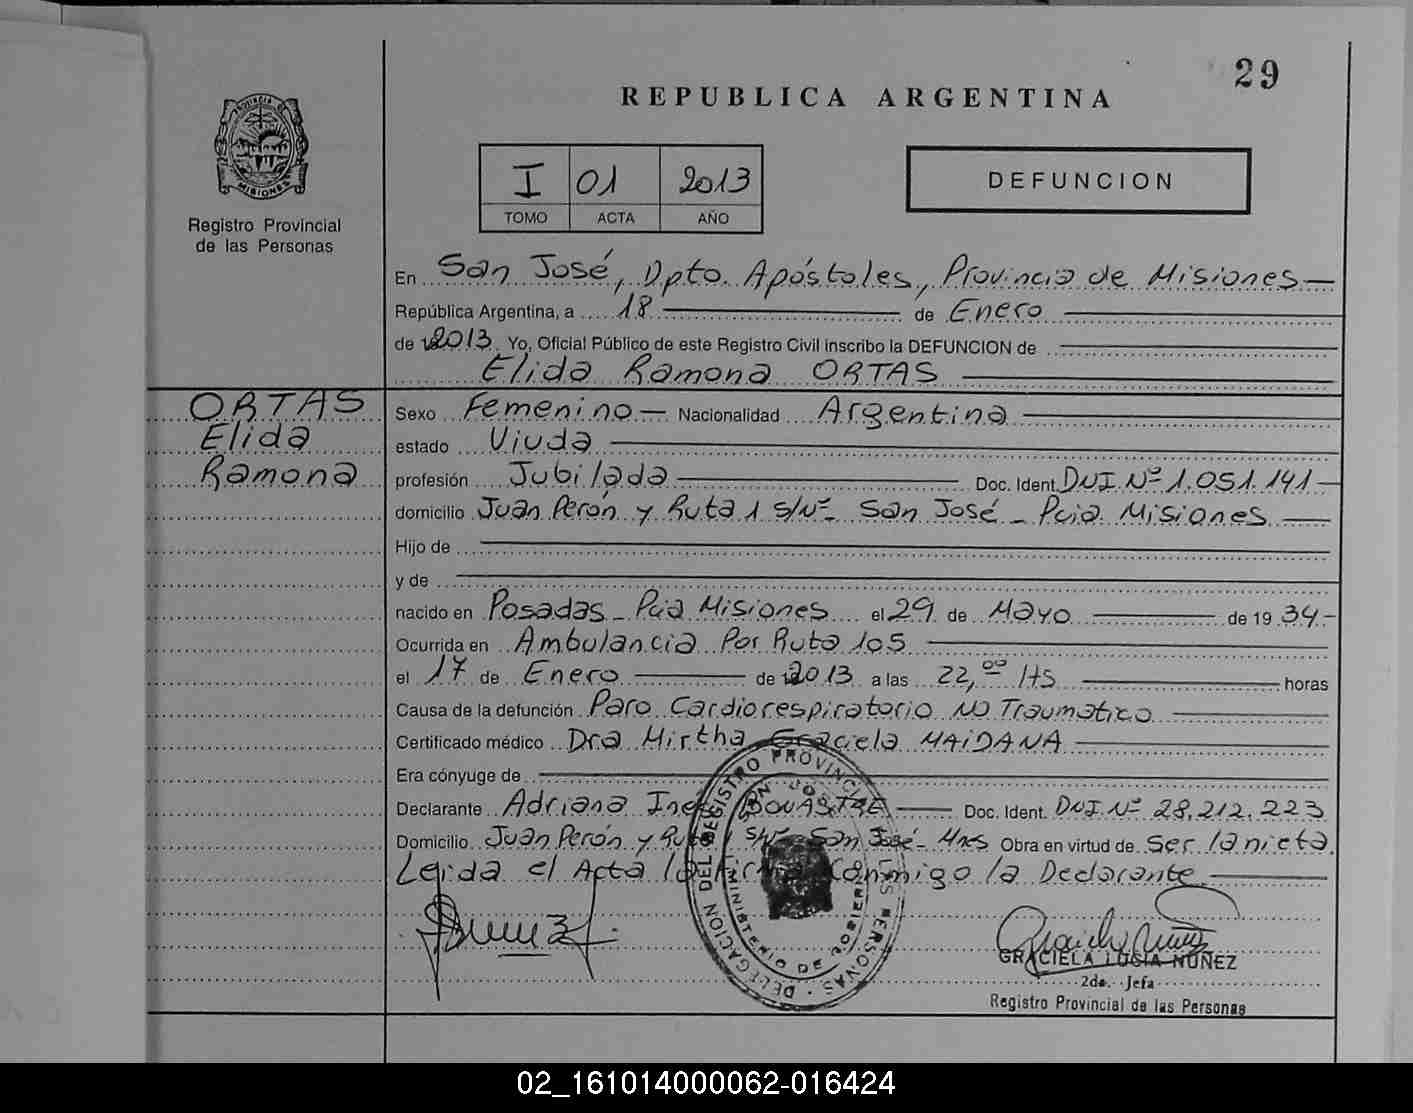 29
REPUBLICA ARGENTINA
PROVINCIA DE
MISIONES
Registro Provincial
de las Personas
I 01 2013
TOMO ACTA AÑO
DEFUNCION
En San José, Dpto. Apóstoles, Provincia de Misiones
República Argentina, a 18 de Enero
de 2013 Yo, Oficial Público de este Registro Civil inscribo la DEFUNCION de
Elida Ramona ORTAS
ORTAS
Elida
Ramona
Sexo Femenino Nacionalidad Argentina
estado Viuda
profesión Jubilada Doc. Ident. DNI Nº 1.051.141
domicilio Juan Perón y Ruta 1 S/Nº San José - Pcia Misiones
Hijo de
y de
nacido en Posadas - Pcia Misiones el 29 de Mayo de 1934
Ocurrida en Ambulancia Por Ruta 105
el 17 de Enero de 2013 a las 22,⁰⁰ Hs horas
Causa de la defunción Paro Cardiorespiratorio No Traumatico
Certificado médico Dra Mirtha Graciela MAIDANA
Era cónyuge de
Declarante Adriana Ines Doc. Ident. DNI Nº 28.212.223
Domicilio Juan Perón y Ruta 1 S/Nº San José - Mnes Obra en virtud de Ser la nieta
Leida el Acta la firma conmigo la Declarante
DELEGACION DEL REGISTRO PROVINCIAL DE LAS PERSONAS
SAN JOSE
MINISTERIO DE GOBIERNO
GRACIELA LUCIA NUÑEZ
2da. Jefa
Registro Provincial de las Personas
02_161014000062-016424